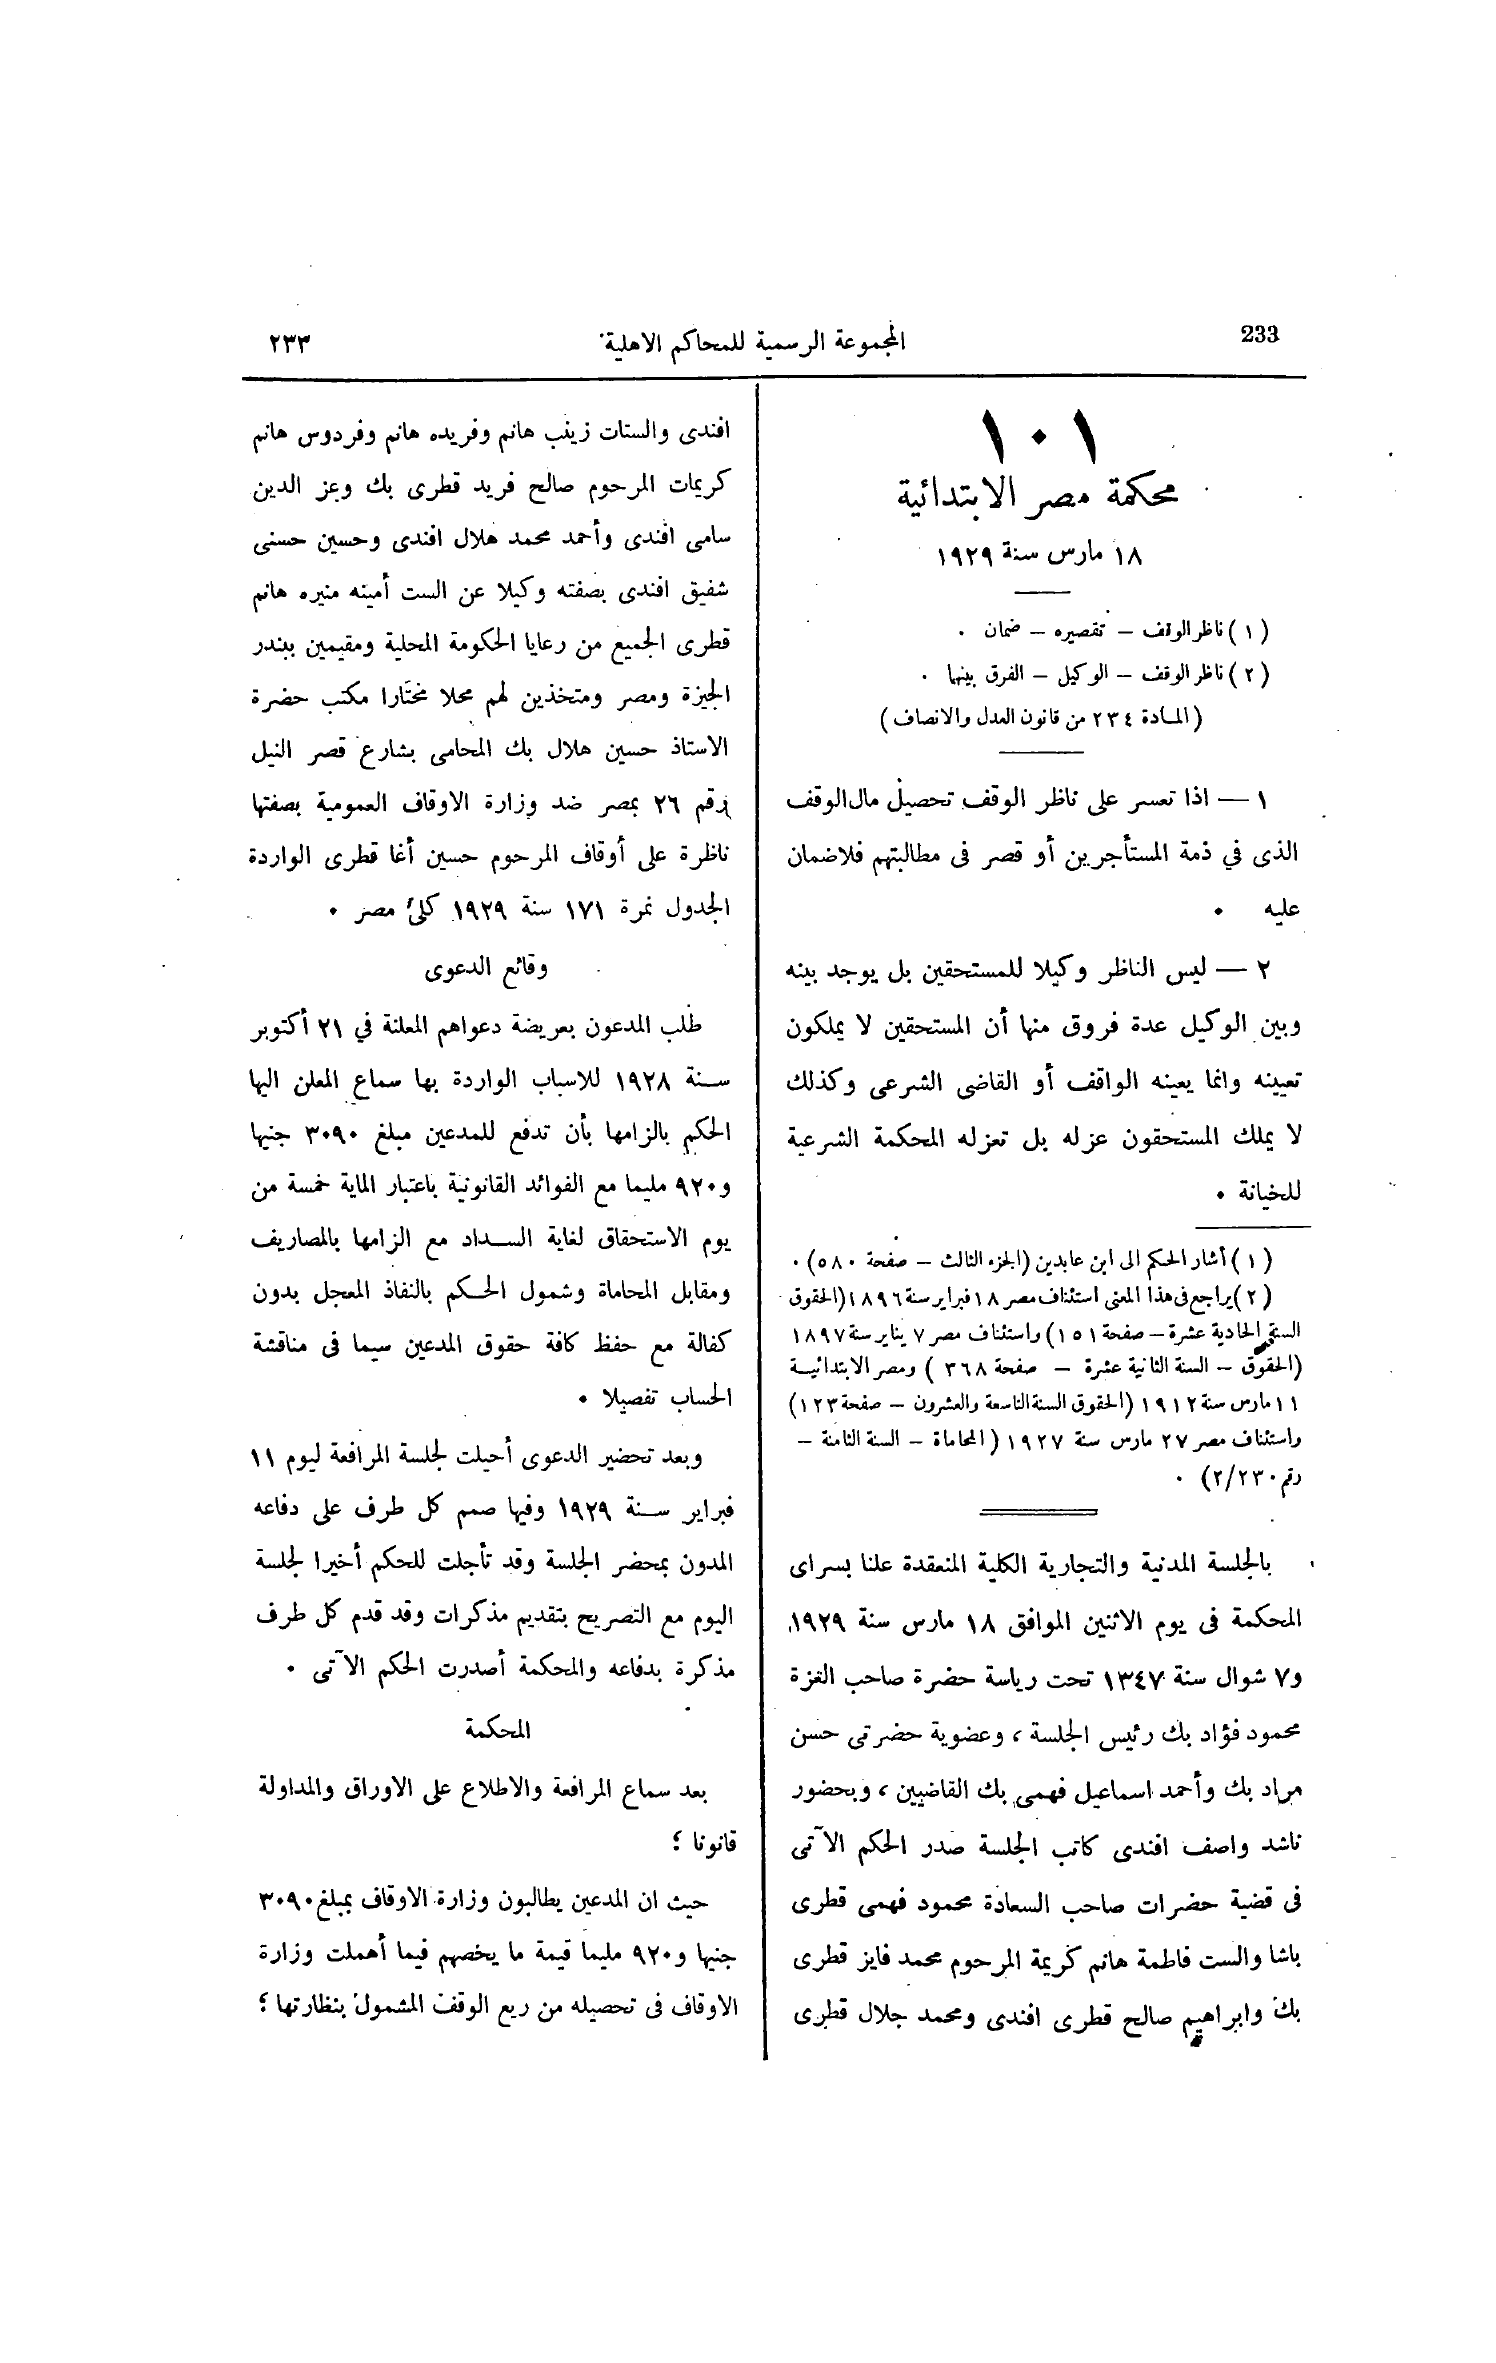 233
المجموعة الرسمية للمحاكم الاهلية
٢٣٣
١٠١
محكمة مصر الابتدائية
١٨ مارس سنة ١٩٢٩
(١) ناظر الوقف – تقصيره – ضمان ٠
(٢) ناظر الوقف – الوكيل – الفرق بينهما ٠
(المادة ٢٣٤ من قانون العدل والانصاف)
١ — اذا تعسر على ناظر الوقف تحصيل مال الوقف
الذى في ذمة المستأجرين أو قصر فى مطالبتهم فلاضمان
عليه ٠
٢ — ليس الناظر وكيلا للمستحقين بل يوجد بينه
وبين الوكيل عدة فروق منها أن المستحقين لا يملكون
تعيينه وانما يعينه الواقف أو القاضى الشرعى وكذلك
لا يملك المستحقون عزله بل تعزله المحكمة الشرعية
للخيانة ٠
(١) أشار الحكم الى ابن عابدين (الجزء الثالث – صفحة ٥٨٠) ٠
(٢) يراجع فى هذا المعنى استئناف مصر ١٨ فبراير سنة ١٨٩٦ (الحقوق
السنة الحادية عشرة – صفحة ١٥١) واستئناف مصر ٧ يناير سنة ١٨٩٧
(الحقوق – السنة الثانية عشرة – صفحة ٣٦٨) ومصر الابتدائية
١١ مارس سنة ١٩١٢ (الحقوق السنة التاسعة والعشرون – صفحة ١٢٣)
واستئناف مصر ٢٧ مارس سنة ١٩٢٧ (المحاماة – السنة الثامنة –
رقم ٢/٢٣٠) ٠
بالجلسة المدنية والتجارية الكلية المنعقدة علنا بسراى
المحكمة فى يوم الاثنين الموافق ١٨ مارس سنة ١٩٢٩
و٧ شوال سنة ١٣٤٧ تحت رياسة حضرة صاحب العزة
محمود فؤاد بك رئيس الجلسة ، وعضوية حضرتى حسن
مراد بك وأحمد اسماعيل فهمى بك القاضيين ، وبحضور
ناشد واصف افندى كاتب الجلسة صدر الحكم الآتى
فى قضية حضرات صاحب السعادة محمود فهمى قطرى
باشا والست فاطمة هانم كريمة المرحوم محمد فايز قطرى
بك وابراهيم صالح قطرى افندى ومحمد جلال قطرى
افندى والستات زينب هانم وفريده هانم وفردوس هانم
كريمات المرحوم صالح فريد قطرى بك وعز الدين
سامى افندى وأحمد محمد هلال افندى وحسين حسنى
شفيق افندى بصفته وكيلا عن الست أمينه منيره هانم
قطرى الجميع من رعايا الحكومة المحلية ومقيمين ببندر
الجيزة ومصر ومتخذين لهم محلا مختارا مكتب حضرة
الاستاذ حسين هلال بك المحامى بشارع قصر النيل
رقم ٢٦ بمصر ضد وزارة الاوقاف العمومية بصفتها
ناظرة على أوقاف المرحوم حسين أغا قطرى الواردة
الجدول نمرة ١٧١ سنة ١٩٢٩ كلى مصر ٠
وقائع الدعوى
طلب المدعون بعريضة دعواهم المعلنة في ٢١ أكتوبر
سنة ١٩٢٨ للاسباب الواردة بها سماع المعلن اليها
الحكم بالزامها بأن تدفع للمدعين مبلغ ٣٠٩٠ جنيها
و٩٢٠ مليما مع الفوائد القانونية باعتبار الماية خمسة من
يوم الاستحقاق لغاية السداد مع الزامها بالمصاريف
ومقابل المحاماة وشمول الحكم بالنفاذ المعجل بدون
كفالة مع حفظ كافة حقوق المدعين سيما فى مناقشة
الحساب تفصيلا ٠
وبعد تحضير الدعوى أحيلت لجلسة المرافعة ليوم ١١
فبراير سنة ١٩٢٩ وفيها صمم كل طرف على دفاعه
المدون بمحضر الجلسة وقد تأجلت للحكم أخيرا لجلسة
اليوم مع التصريح بتقديم مذكرات وقد قدم كل طرف
مذكرة بدفاعه والمحكمة أصدرت الحكم الآتى ٠
المحكمة
بعد سماع المرافعة والاطلاع على الاوراق والمداولة
قانونا ؛
حيث ان المدعين يطالبون وزارة الاوقاف بمبلغ ٣٠٩٠
جنيها و٩٢٠ مليما قيمة ما يخصهم فيما أهملت وزارة
الاوقاف فى تحصيله من ريع الوقف المشمول بنظارتها ؛